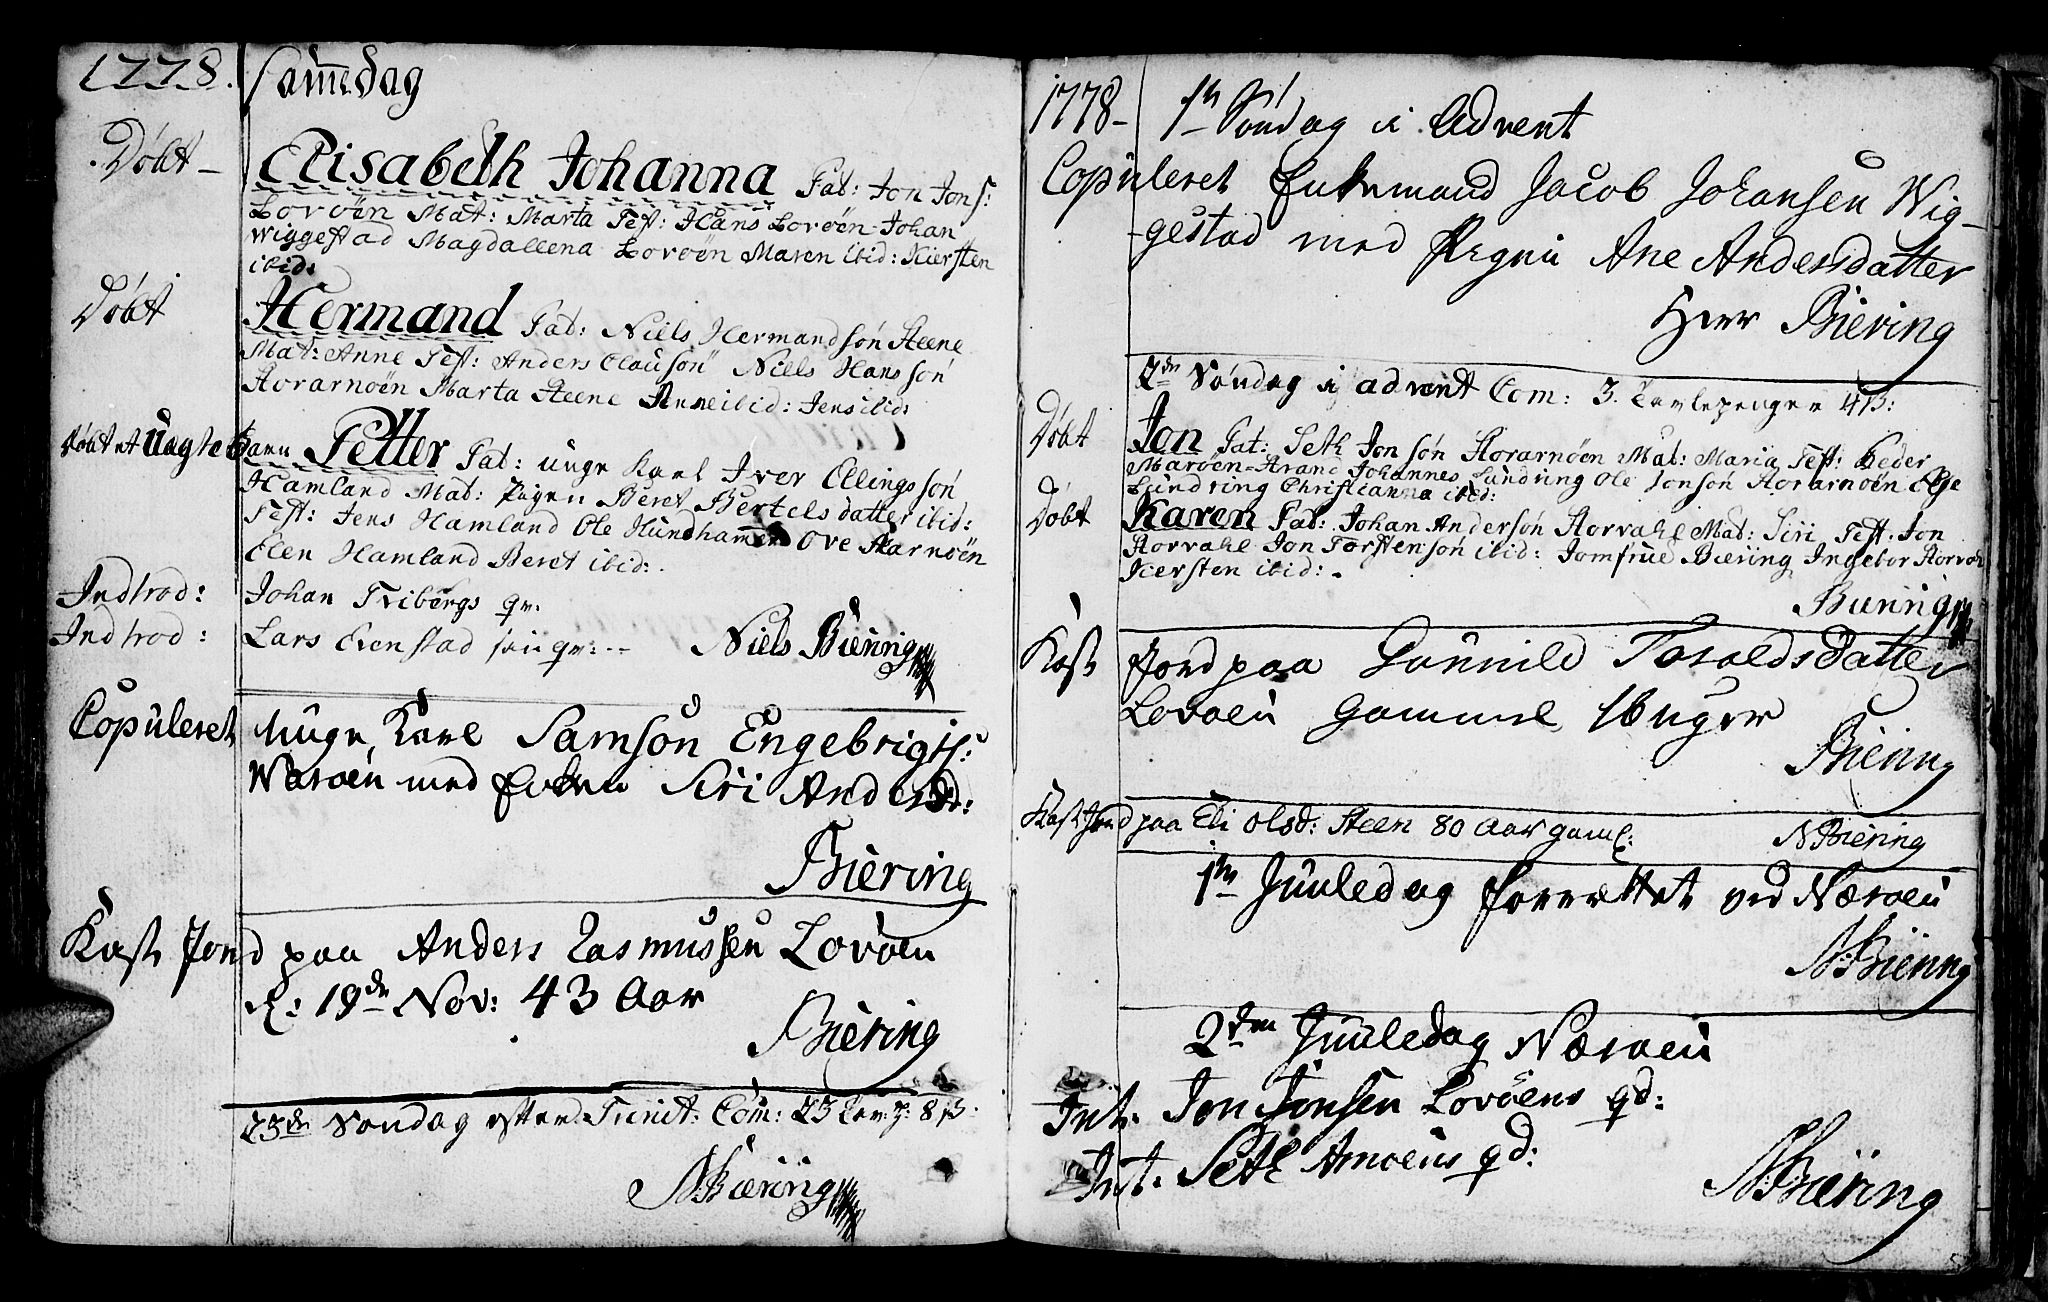 1778. Samedag
Döbt - Elisabeth Johanna Fat: Jon Jons:
Lovöen Mat: Marta Test: Hans Lovöen Johan
Wiggestad Magdallena Lovöen Maren ibid: Kiersten
ibid:
Döbt Hermand Fat: Niels Hermandsön Steene
Mat: Anne Test: Anders Clausön Niels Hanssön
Storarnöen Marta Steene Anne ibid: Jens ibid:
Döbt et uægte barn Petter Fat: unge Karl Iver Ellingssön
Hamland Mat: Pigen Beret Bertelsdatter ibid:
Test: Jens Hamland Ole Hundhammer Ove Starnöen
Elen Hamland Beret ibid:
Indtrod: Johan Fribergs qv:
Indtrod: Lars Evenstad sin qv: -- Niels Biering
Copuleret Unge Karl Samson Engebrigts:
Næroen med Enken Siri Andersd:
Biering
Kast Jord paa Anders Rasmussen Lovöen
d: 19de Nov: 43 Aar
Biering
23de Söndag efter Trinit: Com: 23 Tav: p: 8 β:
NBiering
1778- 1te Söndag i Advent
Copuleret Enkemand Jacob Johansen Wig-
-gestad med Pigen Ane Andersdatter
Herr Biering
2den Söndag i advent Com: 3. Tavlepenger 4β:
Döbt Jon Fat: Seth Jonsön Storarnöen Mat: Maria Test: Peder
Maröen-Strand Johannes Lundring Ole Jonsön Storarnöen Else
Lundring Christianna ibid:
Döbt Karen Fat: Johan Andersön Storvahl Mat: Siri Test. Jon
Storvahl Jon Torstensön ibid: Jomfrue Biering Ingebor Storvahl
Kiersten ibid:.
Biering
Kast Jord paa Gunnild Toroldsdatter
Lovoen gammel 16 uger
Biering
Kast Jord paa Eli Olsd: Steen 80 Aar gaml: NBiering
1te Juuledag forrættet ved Næroen
N:Biering
2den Juuledag Næroen
Int. Jon Jonsen Lovöens qd:
Int. Seth Arnoens qd:
NBiering